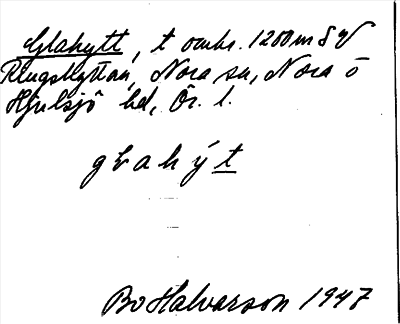 Glahytt, t omkr. 1200 m S V
Klugshyttan, Nora sn, Nora o
Hjulsjö hd, Ör. l.
glahýt
Bo Halvarson 1947